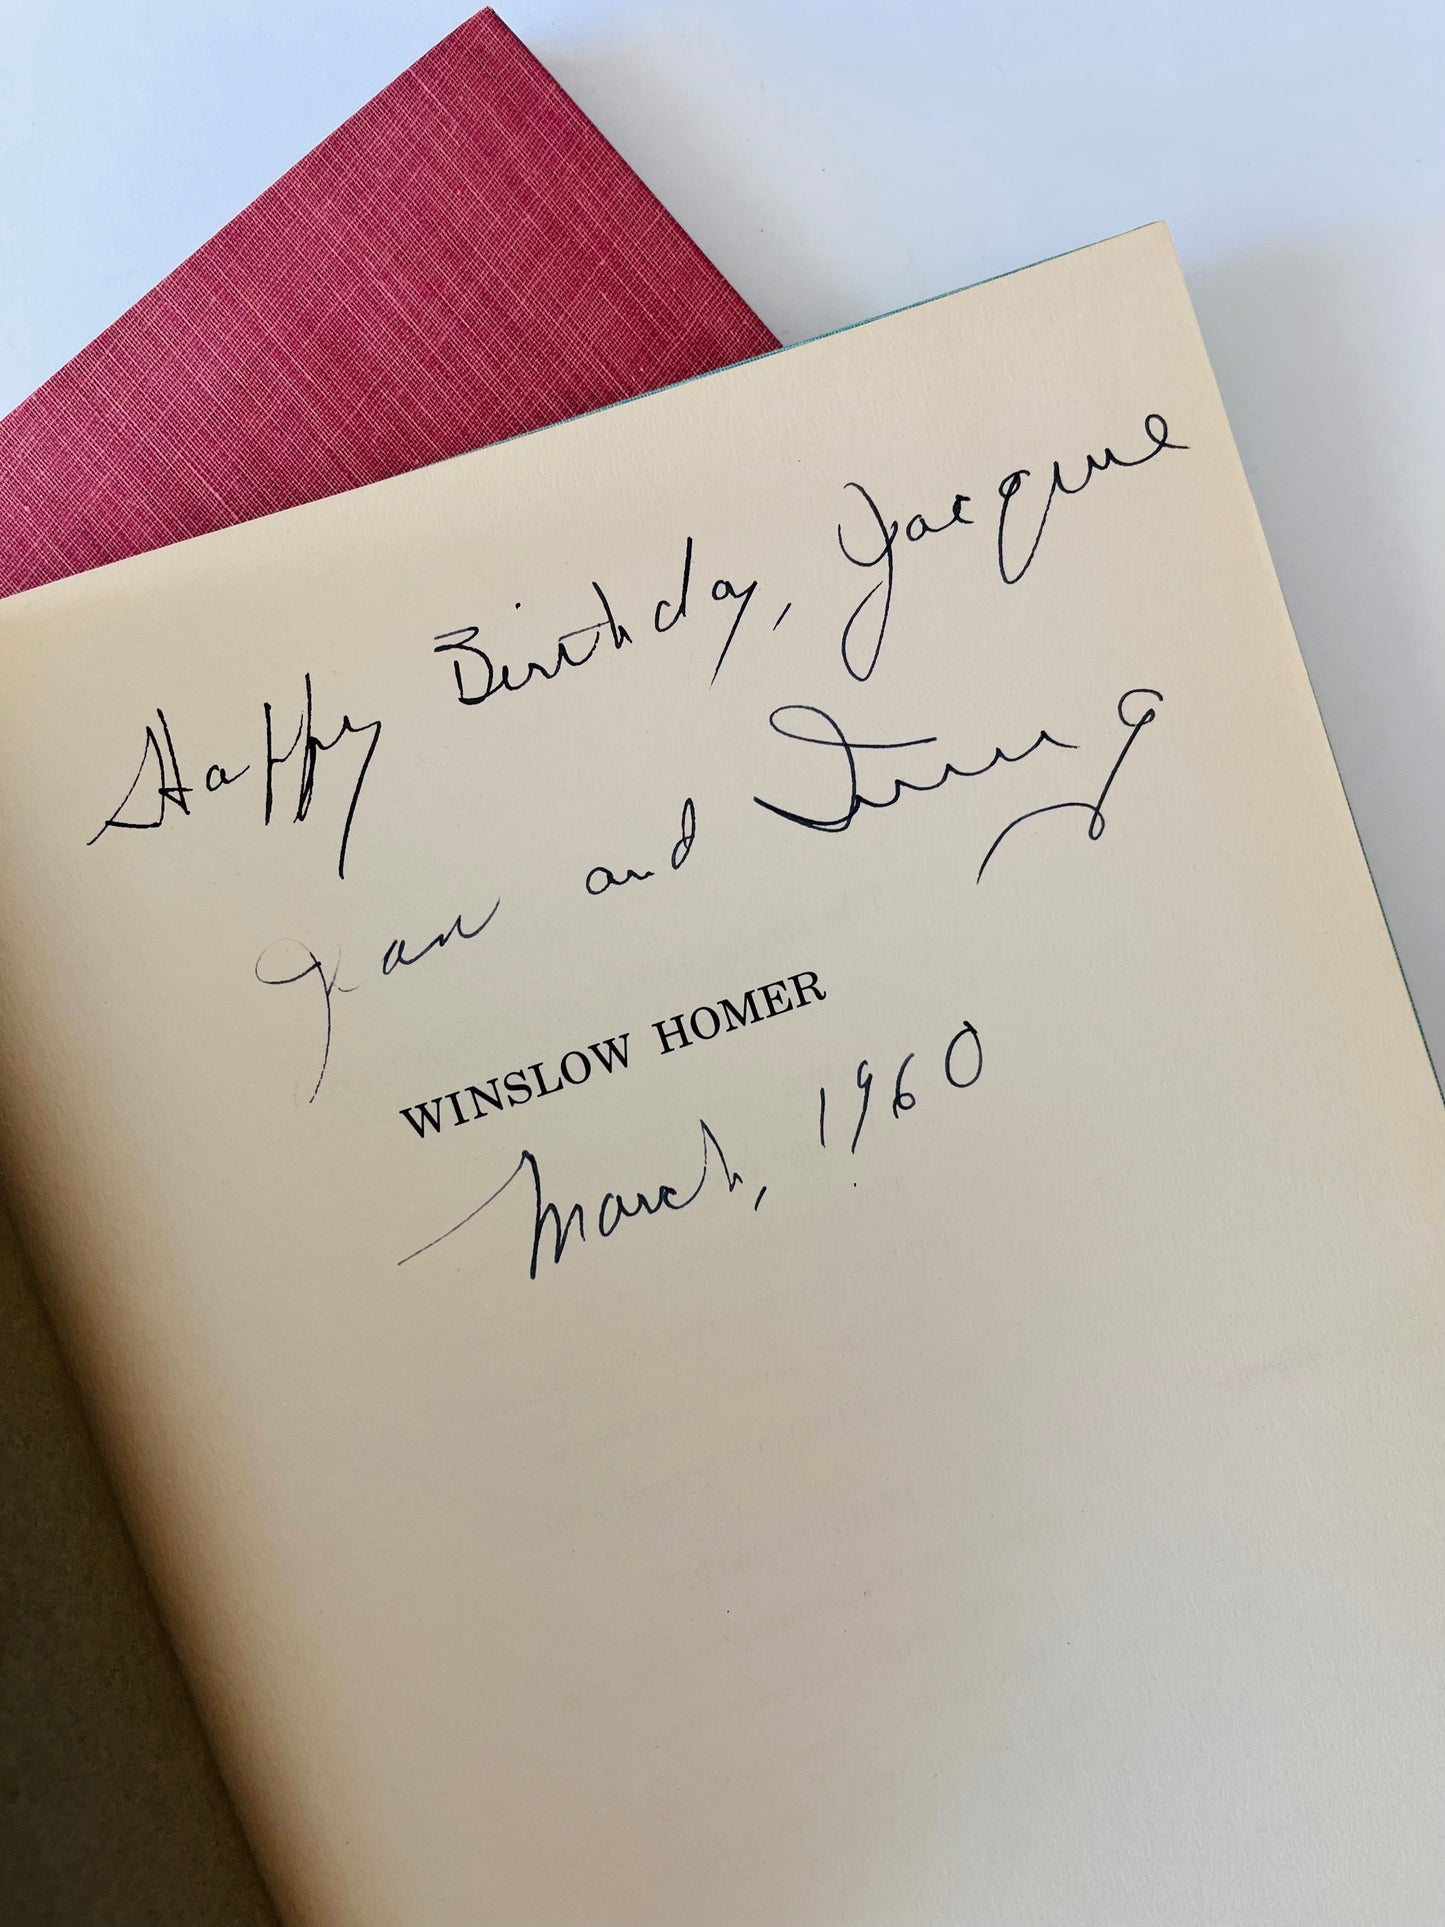 Happy Birthday, Jacque
Jean and Irving
WINSLOW HOMER
March, 1960